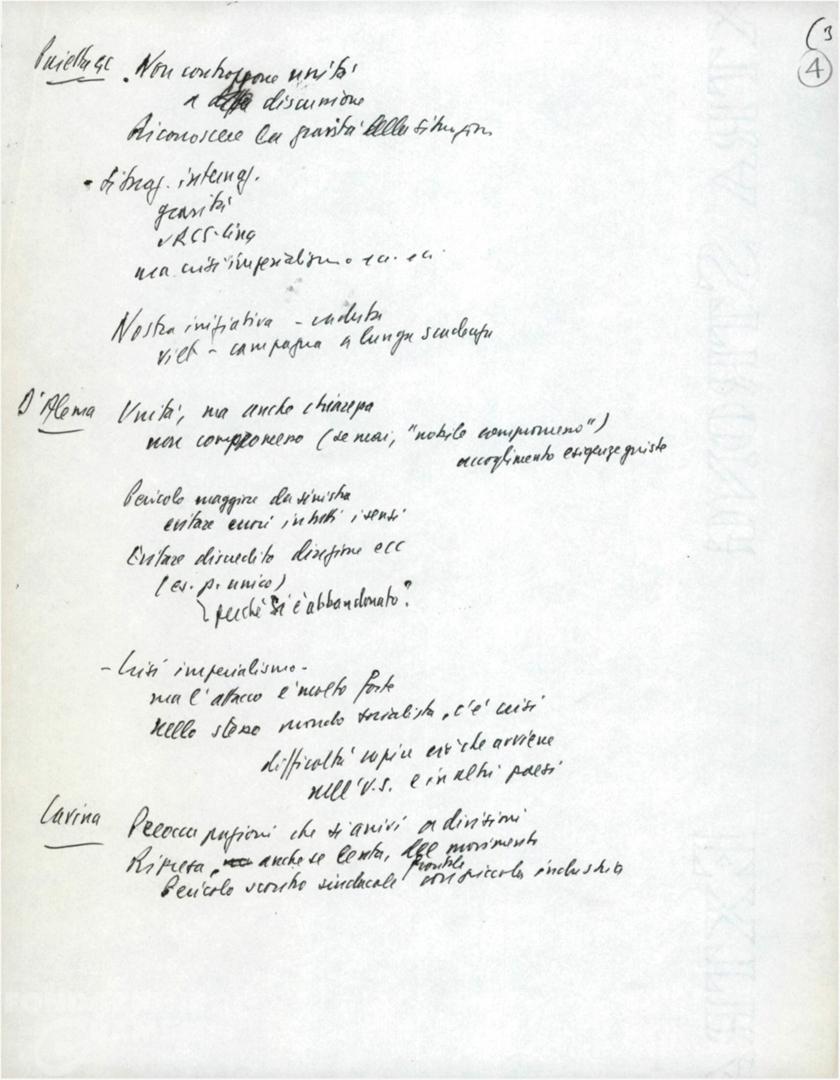 (3
4
Pajetta GC . Non contrappone unità
a discussione
Riconoscere la gravità della situazion
- Situaz. internaz.
gravità
URSS-Cina
ma crisi imperialismo ecc. ecc.
Nostra iniziativa - caduta
Viet - campagna a lunga scadenza
D'Alema Unità, ma anche chiarezza
non compromesso (se mai, "nobile compromesso")
accoglimento esigenze giuste
Pericolo maggiore da sinistra
evitare errori in tutti i sensi
Evitare discredito direzione ecc
(es. p. unico)
perché si è abbandonato?
- Crisi imperialismo -
ma l'attacco è molto forte
Nello stesso mondo socialista, c'è crisi
difficoltà capire ciò che avviene
nell'U.S. e in altri paesi
Lavina Preoccupazioni che si arrivi a divisioni
Ripresa, anche se lenta, del movimento
Pericolo scontro sindacale frontale con piccola industria